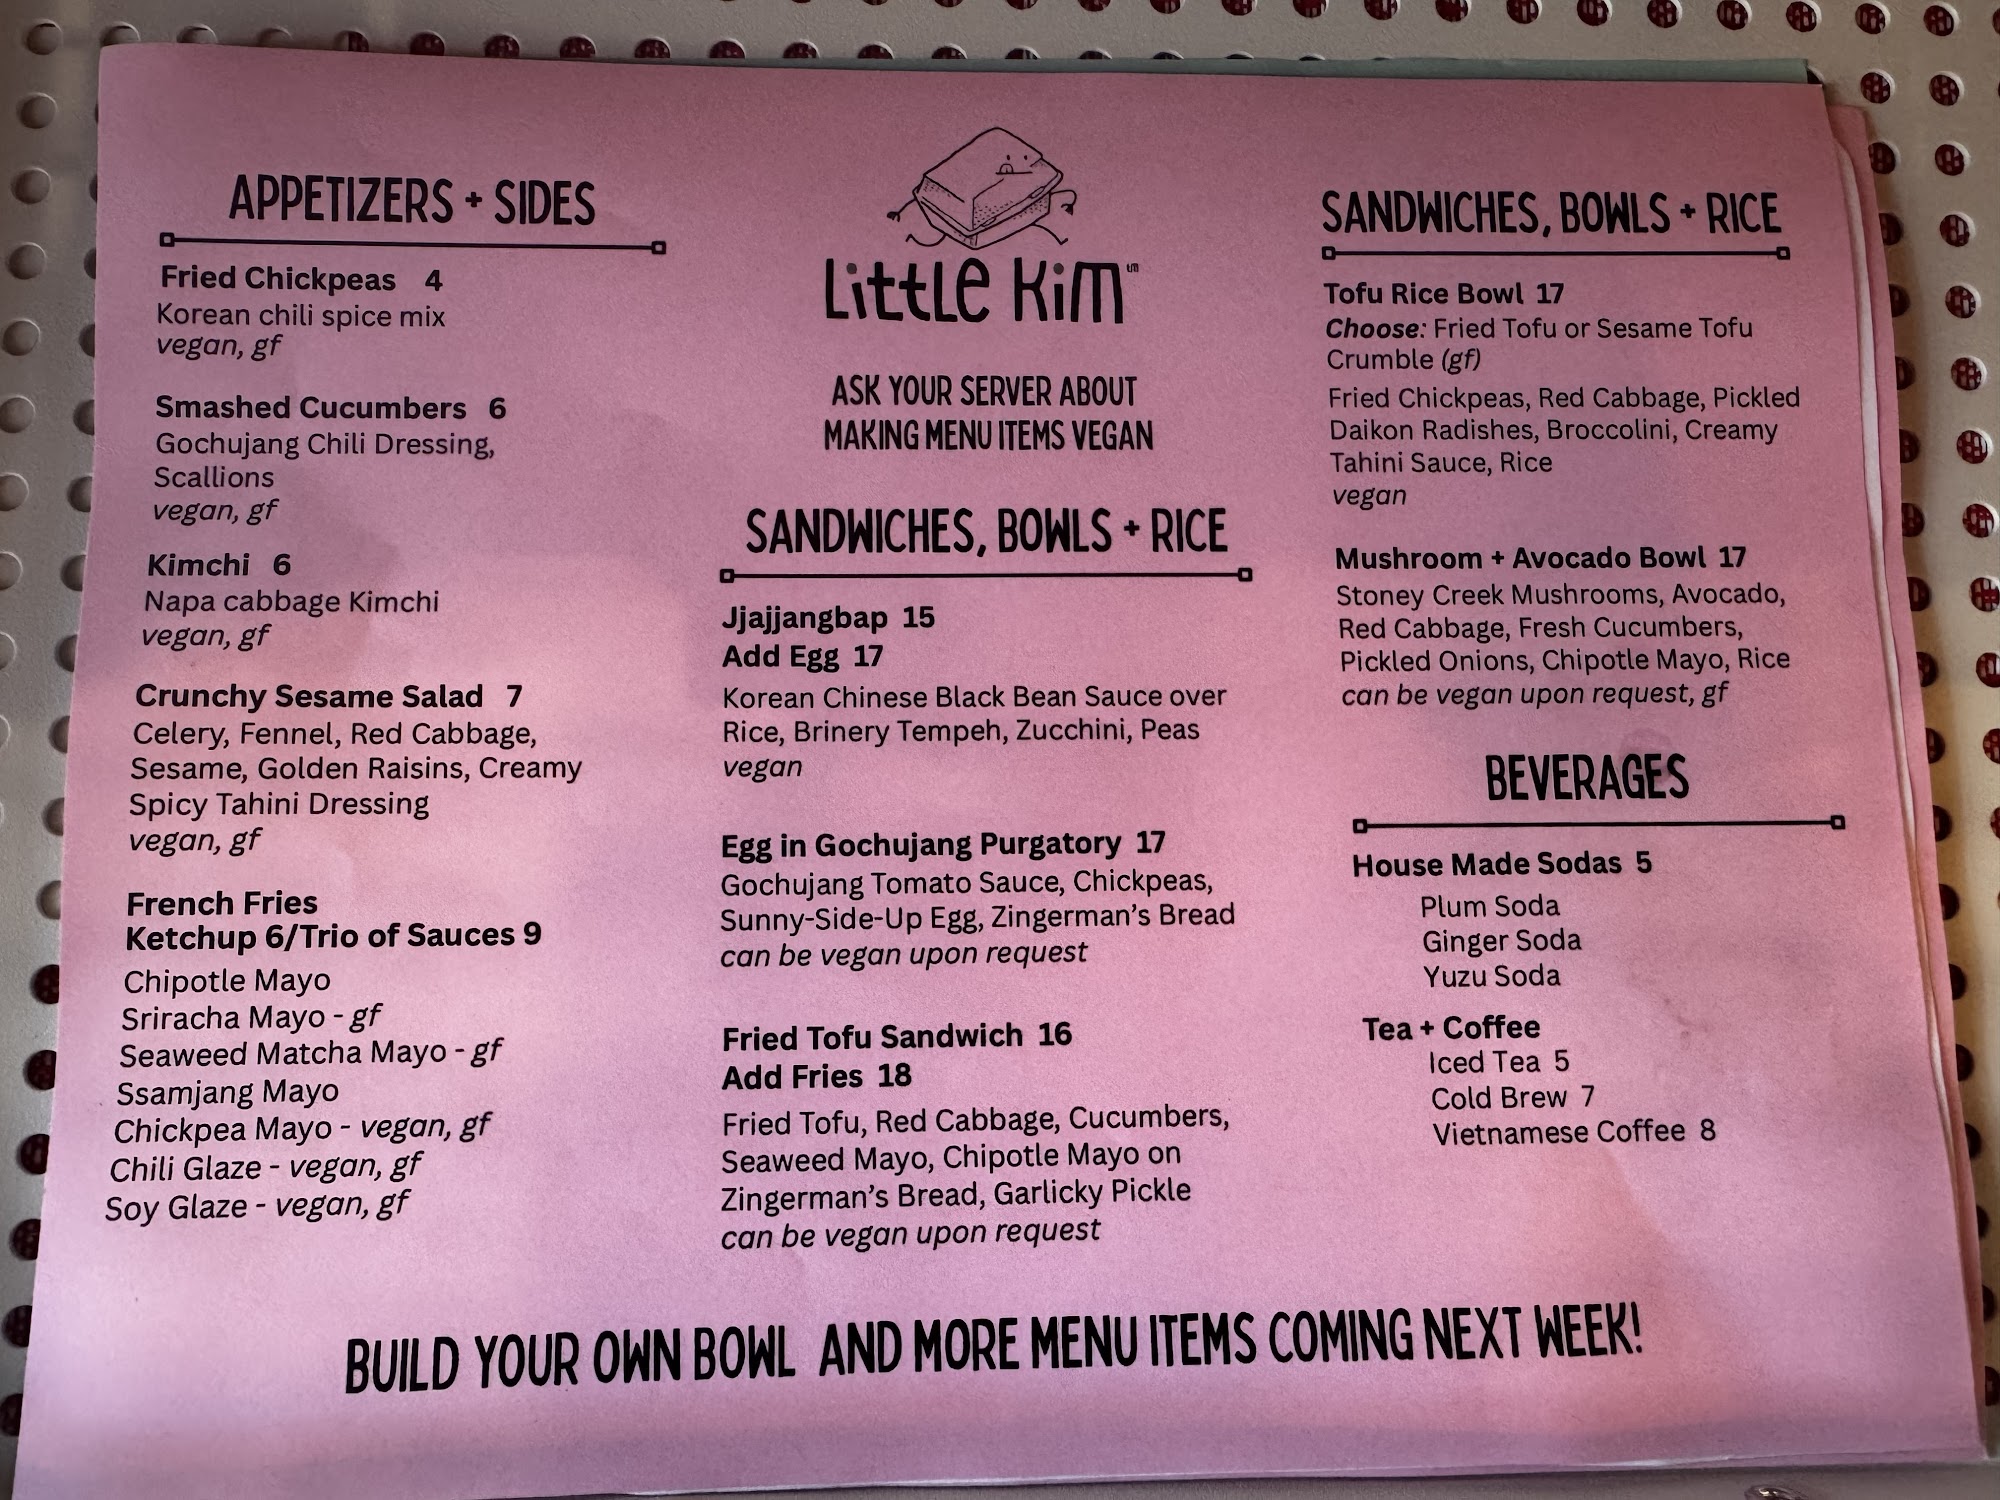 APPETIZERS + SIDES
Fried Chickpeas 4
Korean chili spice mix
vegan, gf
Smashed Cucumbers 6
Gochujang Chili Dressing,
Scallions
vegan, gf
Kimchi 6
Napa cabbage Kimchi
vegan, gf
Crunchy Sesame Salad 7
Celery, Fennel, Red Cabbage,
Sesame, Golden Raisins, Creamy
Spicy Tahini Dressing
vegan, gf
French Fries
Ketchup 6/Trio of Sauces 9
Chipotle Mayo
Sriracha Mayo - gf
Seaweed Matcha Mayo - gf
Ssamjang Mayo
Chickpea Mayo - vegan, gf
Chili Glaze - vegan, gf
Soy Glaze - vegan, gf
Little Kim™
ASK YOUR SERVER ABOUT
MAKING MENU ITEMS VEGAN
SANDWICHES, BOWLS + RICE
Jjajjangbap 15
Add Egg 17
Korean Chinese Black Bean Sauce over
Rice, Brinery Tempeh, Zucchini, Peas
vegan
Egg in Gochujang Purgatory 17
Gochujang Tomato Sauce, Chickpeas,
Sunny-Side-Up Egg, Zingerman's Bread
can be vegan upon request
Fried Tofu Sandwich 16
Add Fries 18
Fried Tofu, Red Cabbage, Cucumbers,
Seaweed Mayo, Chipotle Mayo on
Zingerman's Bread, Garlicky Pickle
can be vegan upon request
SANDWICHES, BOWLS + RICE
Tofu Rice Bowl 17
Choose: Fried Tofu or Sesame Tofu
Crumble (gf)
Fried Chickpeas, Red Cabbage, Pickled
Daikon Radishes, Broccolini, Creamy
Tahini Sauce, Rice
vegan
Mushroom + Avocado Bowl 17
Stoney Creek Mushrooms, Avocado,
Red Cabbage, Fresh Cucumbers,
Pickled Onions, Chipotle Mayo, Rice
can be vegan upon request, gf
BEVERAGES
House Made Sodas 5
Plum Soda
Ginger Soda
Yuzu Soda
Tea + Coffee
Iced Tea 5
Cold Brew 7
Vietnamese Coffee 8
BUILD YOUR OWN BOWL AND MORE MENU ITEMS COMING NEXT WEEK!